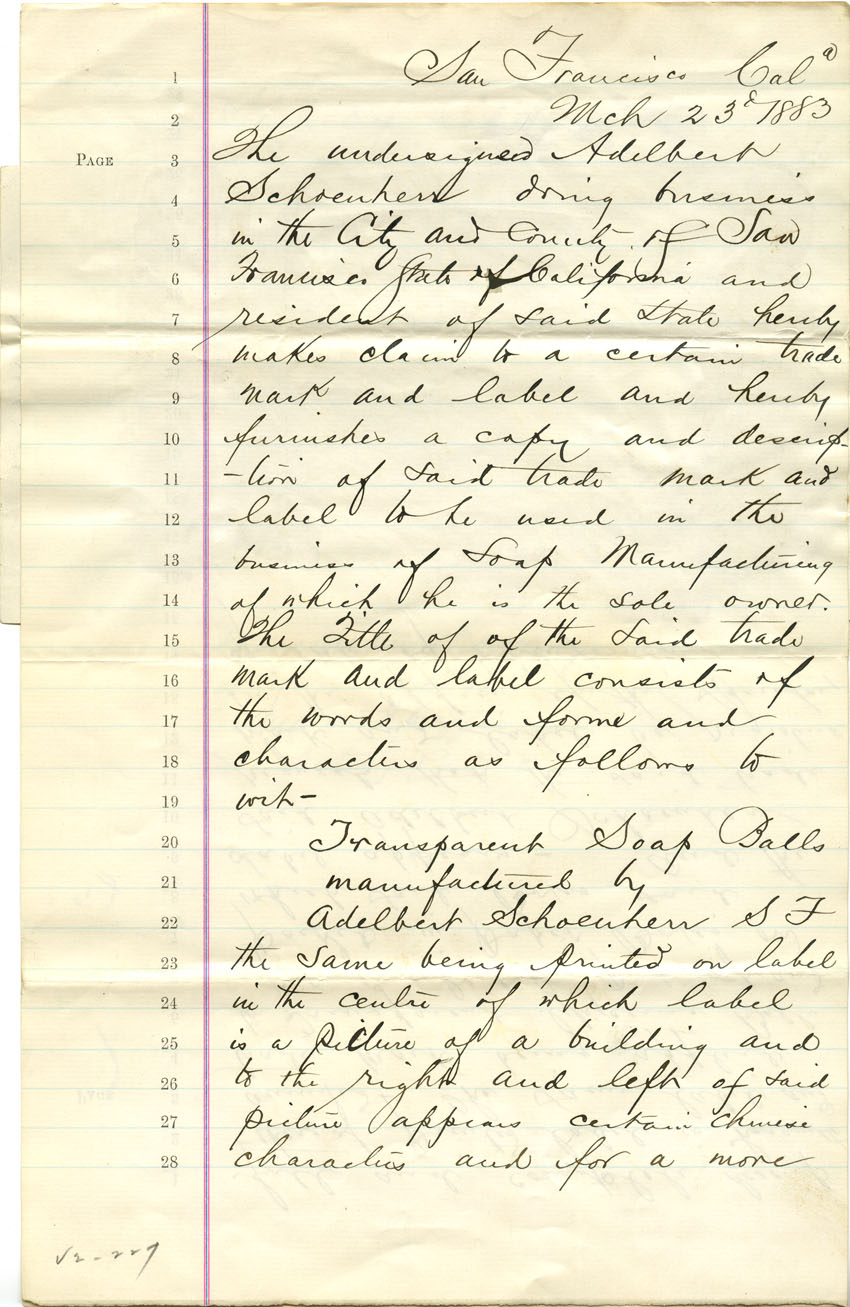 1 San Francisco Cal a
2 Mch 23d 1883
PAGE 3 The undersigned Adelbert
4 Schoenherr doing business
5 in the City and County of San
6 Francisco State of California and
7 resident of said State hereby
8 makes claim to a certain trade
9 mark and label and hereby
10 furnishes a copy and descrip-
11 -tion of said trade mark and
12 label to be used in the
13 business of Soap Manufacturing
14 of which he is the sole owner.
15 The Title of of the said trade
16 mark and label consists of
17 the words and forme and
18 characters as follows to
19 wit-
20 Transparent Soap Balls
21 manufactured by
22 Adelbert Schoenherr S F
23 the same being printed on label
24 in the centre of which label
25 is a picture of a building and
26 to the right and left of said
27 picture appears certain chinese
28 characters and for a more